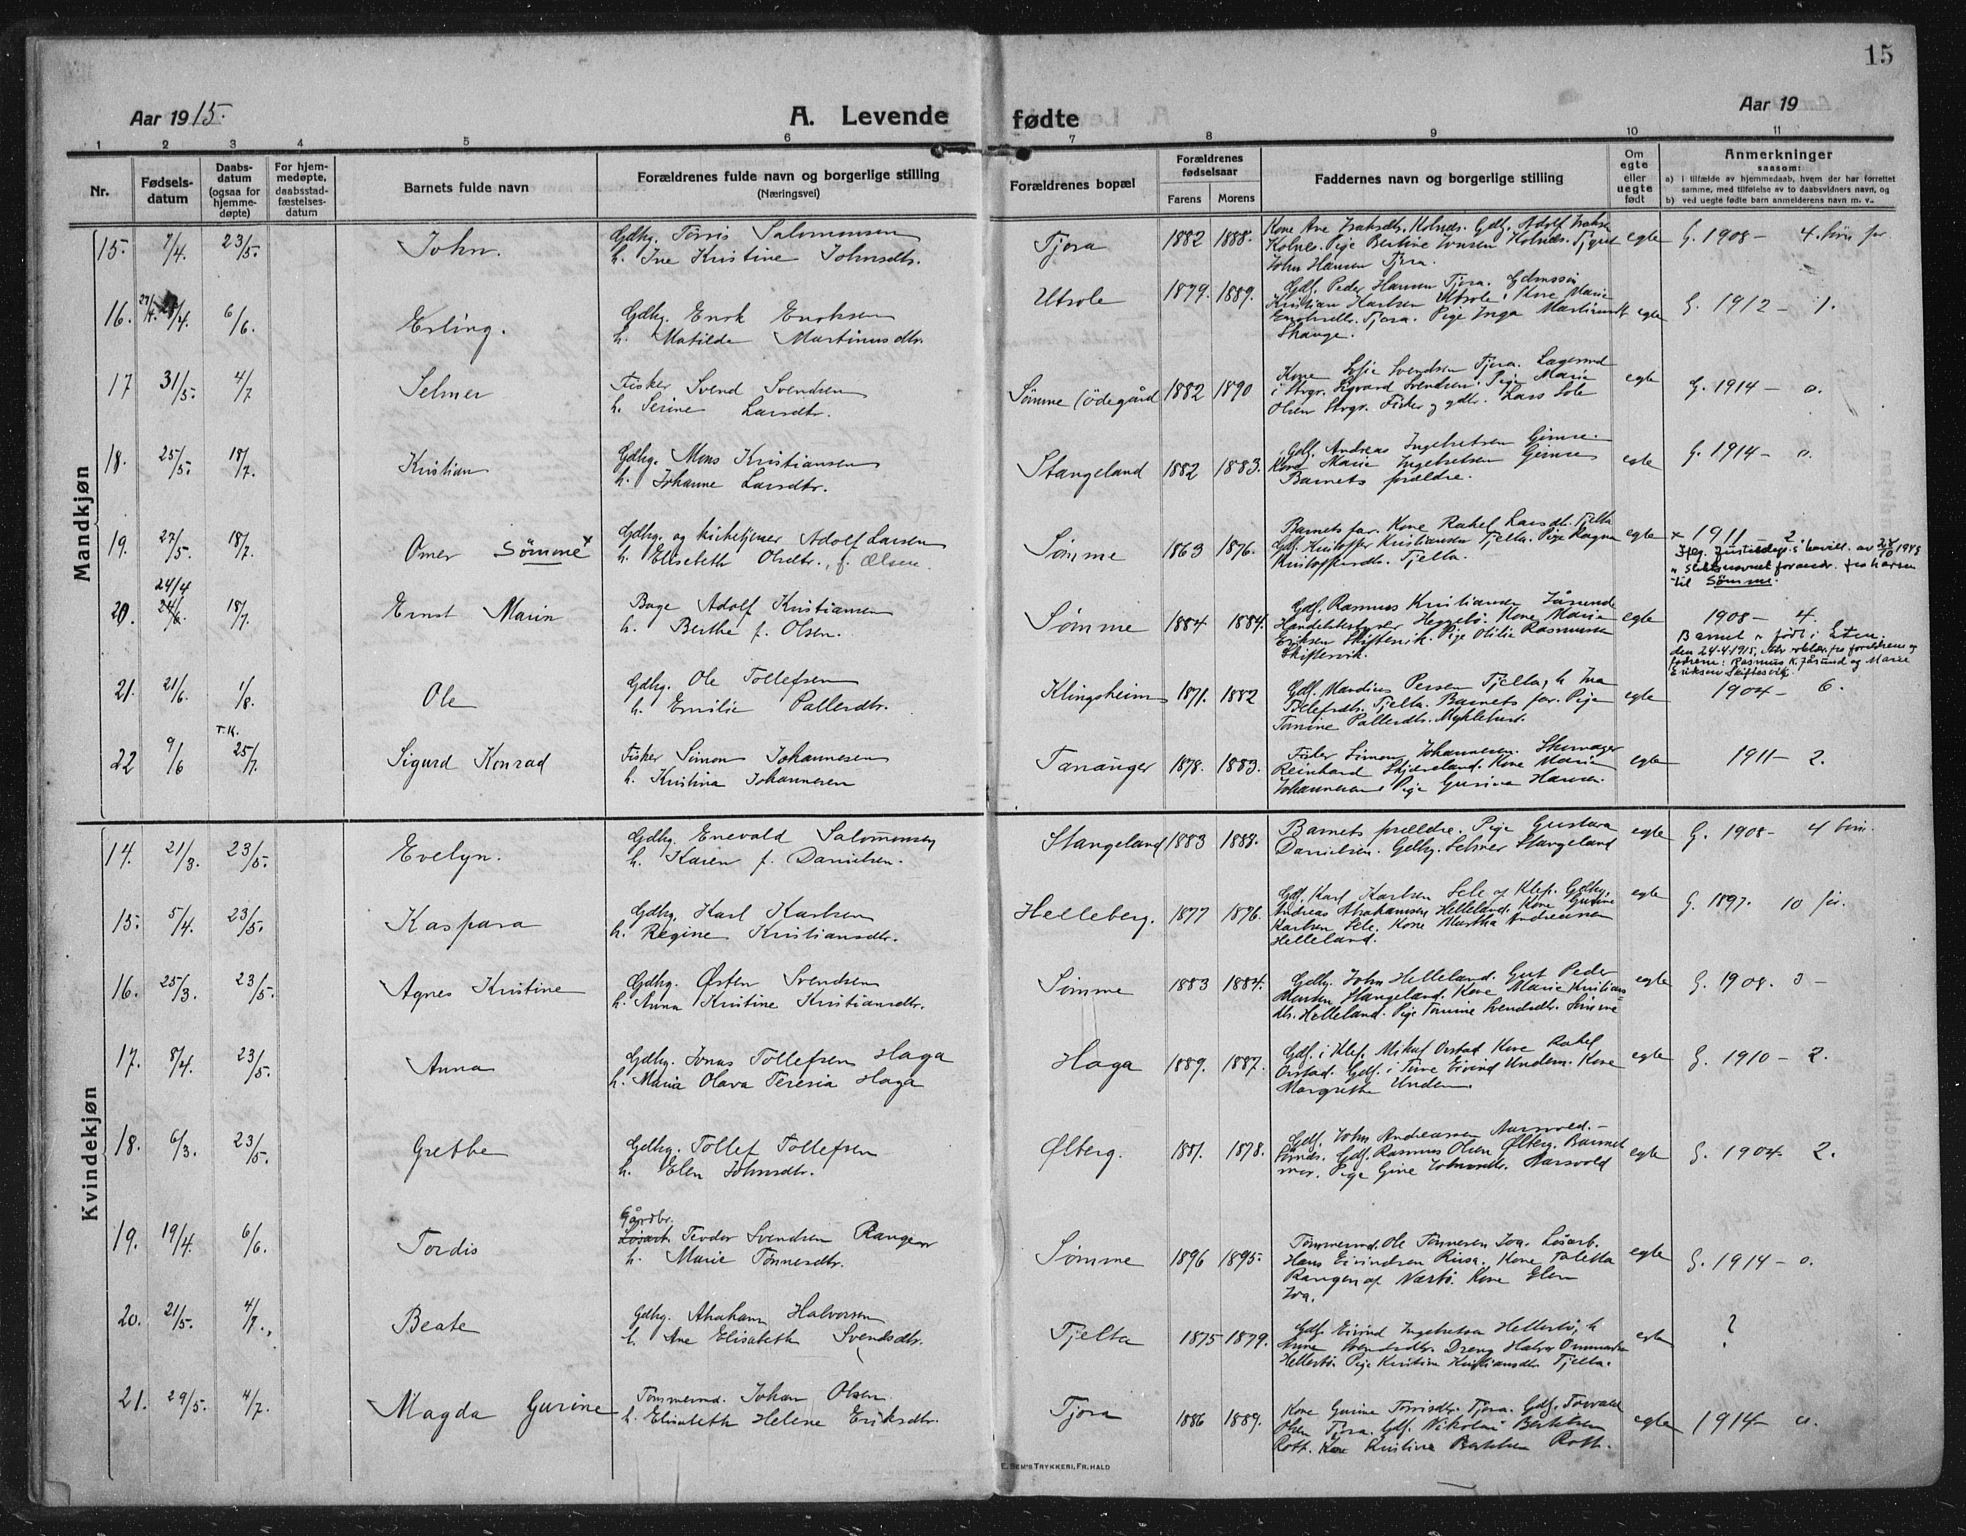 15
Aar 1915. A. Levende fødte Aar 19
1 2 3 4 5 6 7 8 9 10 11
Nr.
Fødsels-
datum
Daabs-
datum
(ogsaa for
hjemme-
døpte)
For hjem-
medøpte,
daabsstad-
fæstelses-
datum
Barnets fulde navn
Forældrenes fulde navn og borgerlige stilling
(Næringsvei)
Forældrenes bopæl
Forældrenes
fødselsaar
Farens Morens
Faddernes navn og borgerlige stilling
Om
egte
eller
uegte
født
Anmerkninger
saasom:
a) i tilfælde av hjemmedaab, hvem der har forrettet
samme, med tilføielse av to daabsvidners navn, og
b) ved uegte fødte barn anmelderens navn m. v..
Mandkjøn
15. 7/4. 23/5. John. Gdbg. Tørris Salomonsen
h. Ine Kristine Johnsdtr.
Tjora 1882 1888.
John Hansen Tjora.
egte G. 1908 - 4.
16. 6/6. Erling. Gdbg. Enok Enoksen
h. Matilde Martinusdtr.
Utsole 1879. 1889.
Gdf. Peder Hansen Tjora.
Kristian Karlsen Utsole. Kone Marie
Tjora. Pige Inga
Skange.
egte G. 1912 - 1.
17 31/5. 4/7 Selmer Fisker Svend Svendsen
h. Serine Larsdtr.
Sømme (ødegård 1882 1890
Kone Sofie Svendsen Tjora.
i Stvgr. Sigvard Svendsen. Pige Marie
Olsen Stvgr. Fisker og gdbr. Lars Sole
egte G. 1914 - 0.
18. 25/5. 18/7. Kristian Gdbg. Mons Kristiansen
h. Johanne Larsdtr.
Stangeland 1882 1883.
Gdf. Andreas Ingebretsen Gimre.
Kone Marie Ingebretsen Gimre
Barnets forældre.
egte G. 1914 - 0.
19. 27/5. 18/7. Omer Sømme x Gdbg. og kirketjener Adolf Larsen
h. Elisebeth Olsdtr., f. Olsen.
Sømme 1863 1876.
Barnets far. Kone Rakel Larsdtr. Tjelta
Gdf. Kristoffer Kristiansen Tjelta. Pige Ragna
Kristoffersdtr. Tjelta.
egte x 1911 - 2
til Sømme.
20. 24/4 24/6 18/7. Ernst Marin Bage Adolf Kristiansen
h. Berthe f. Olsen.
Sømme 1884 1884.
Gdf. Rasmus Kristiansen Jåsund
Handelsbestyrer Heggebø. Kone Maria
Eriksen Skiftesvik. Pige Otilie Rasmussen
Skiftesvik.
egte 1908 - 4.
Barnet er født i Eten
den 24-4-1915,
fadrene: Rasmus K. Jåsund og Marie
Eriksen Skiftesvik.
21. 21/6. 1/8. Ole Gdbg. Ole Tollefsen
h. Emilie Pallesdtr.
Klingsheim 1871. 1882
Gdf. Mandius Persen Tjelta, h. Ina
Tollefsdtr. Tjelta. Barnets far. Pige
Tomine Pallesdtr. Myklebust.
egte 1904 - 6.
22 9/6 T.K. 25/7. Sigurd Konrad Fisker Simon Johannesen
h. Kristina Johannesen
Tananger 1878. 1883.
Fisker Simon Johannesen. Skomager
Reinhard Skjæveland. Kone Marie
Johannesen, Pige Gurina Hansen.
egte 1911 - 2.
Kvindekjøn
14. 21/3. 23/5. Evelyn. Gdbg. Enevald Salomonsen
h. Karen f. Danielsen.
Stangeland 1883 1888.
Barnets forældre. Pige Gustava
Danielsen. Gdbg. Selmer Stangeland
egte G. 1908 - 4
15. 5/4. 23/5. Kaspara Gdbg. Karl Karlsen
h. Regine Kristiansdtr.
Helleberg. 1877 1876.
Gdf. Karl Karlsen Sele af Klep. Gdbg.
Andreas Abrahamsen Helleland. Kone Gurine
Karlsen Sele. Kone Martha Andreassen
Helleland.
egte G. 1897. 10
16. 25/3. 23/5. Agnes Kristine Gdbg. Østen Svendsen
h. Anna Kristine Kristiansdtr.
Sømme 1883 1884.
Gdbg. John Helleland. Gut Peder
Stangeland. Kone Marie Kristians-
dtr. Helleland. Pige Tomine Svendsdtr. Sømme
egte G. 1908. 3 -
17. 8/4. 23/5. Anna Gdbg. Jonas Tollefsen Haga
h. Maria Olava Teresia Haga
Haga 1889. 1887.
Gdf. i Klep. Mikal Orstad Kone Rakel
Orstad. Gdf. i Time Eivind Undem. Kone
Margrethe Undem
egte G. 1910 - 2.
18. 6/3. 23/5. Grethe Gdbg. Tollef Tollefsen
h. Elen Johnsdtr.
Ølberg. 1881. 1878.
Gdf. John Andreassen Aarsvold. -
Gdf. Rasmus Olsen Ølberg. Barnets
mor. Pige Gine Aarsvold
egte G. 1904. 2.
19. 19/4. 6/6. Tordis Gårdbr.
Løsarb. Tevdor Svendsen Rangen
h. Marie Tønnesdtr.
Sømme 1896 1895.
Tømmermd. Ole Tønnesen Joa. Løsarb.
Hans Eivindsen Risa. Kone Taletta
Rangen af Nærbø. Kone Elen
Joa.
egte G. 1914 - 0.
20. 21/5. 4/7. Beate Gdbg. Abraham Halvorsen
h. Ane Elisabeth Svendsdtr.
Tjelta 1875 1879.
Gdf. Eivind Ingebretsen Hellestø, h.
Anne Svendsdtr. Dreng Halvor
Hellestø. Pige Kristine Kristiansdtr. Tjelta.
egte ?
21. 29/5. 4/7. Magda Gurine Tømmermd. Johan Olsen
h. Elisabeth Helene Eriksdtr.
Tjora 1886 1889.
Kone Gurine Torrisdtr. Tjora. Gdf. Torvald
Olsen Tjora. Gdf. Nikolai Berthsen
Rott. Kone Kristine Berthsen Rott.
egte 1914 - 0.
E. SEM'S TRYKKERI, FR. HALD